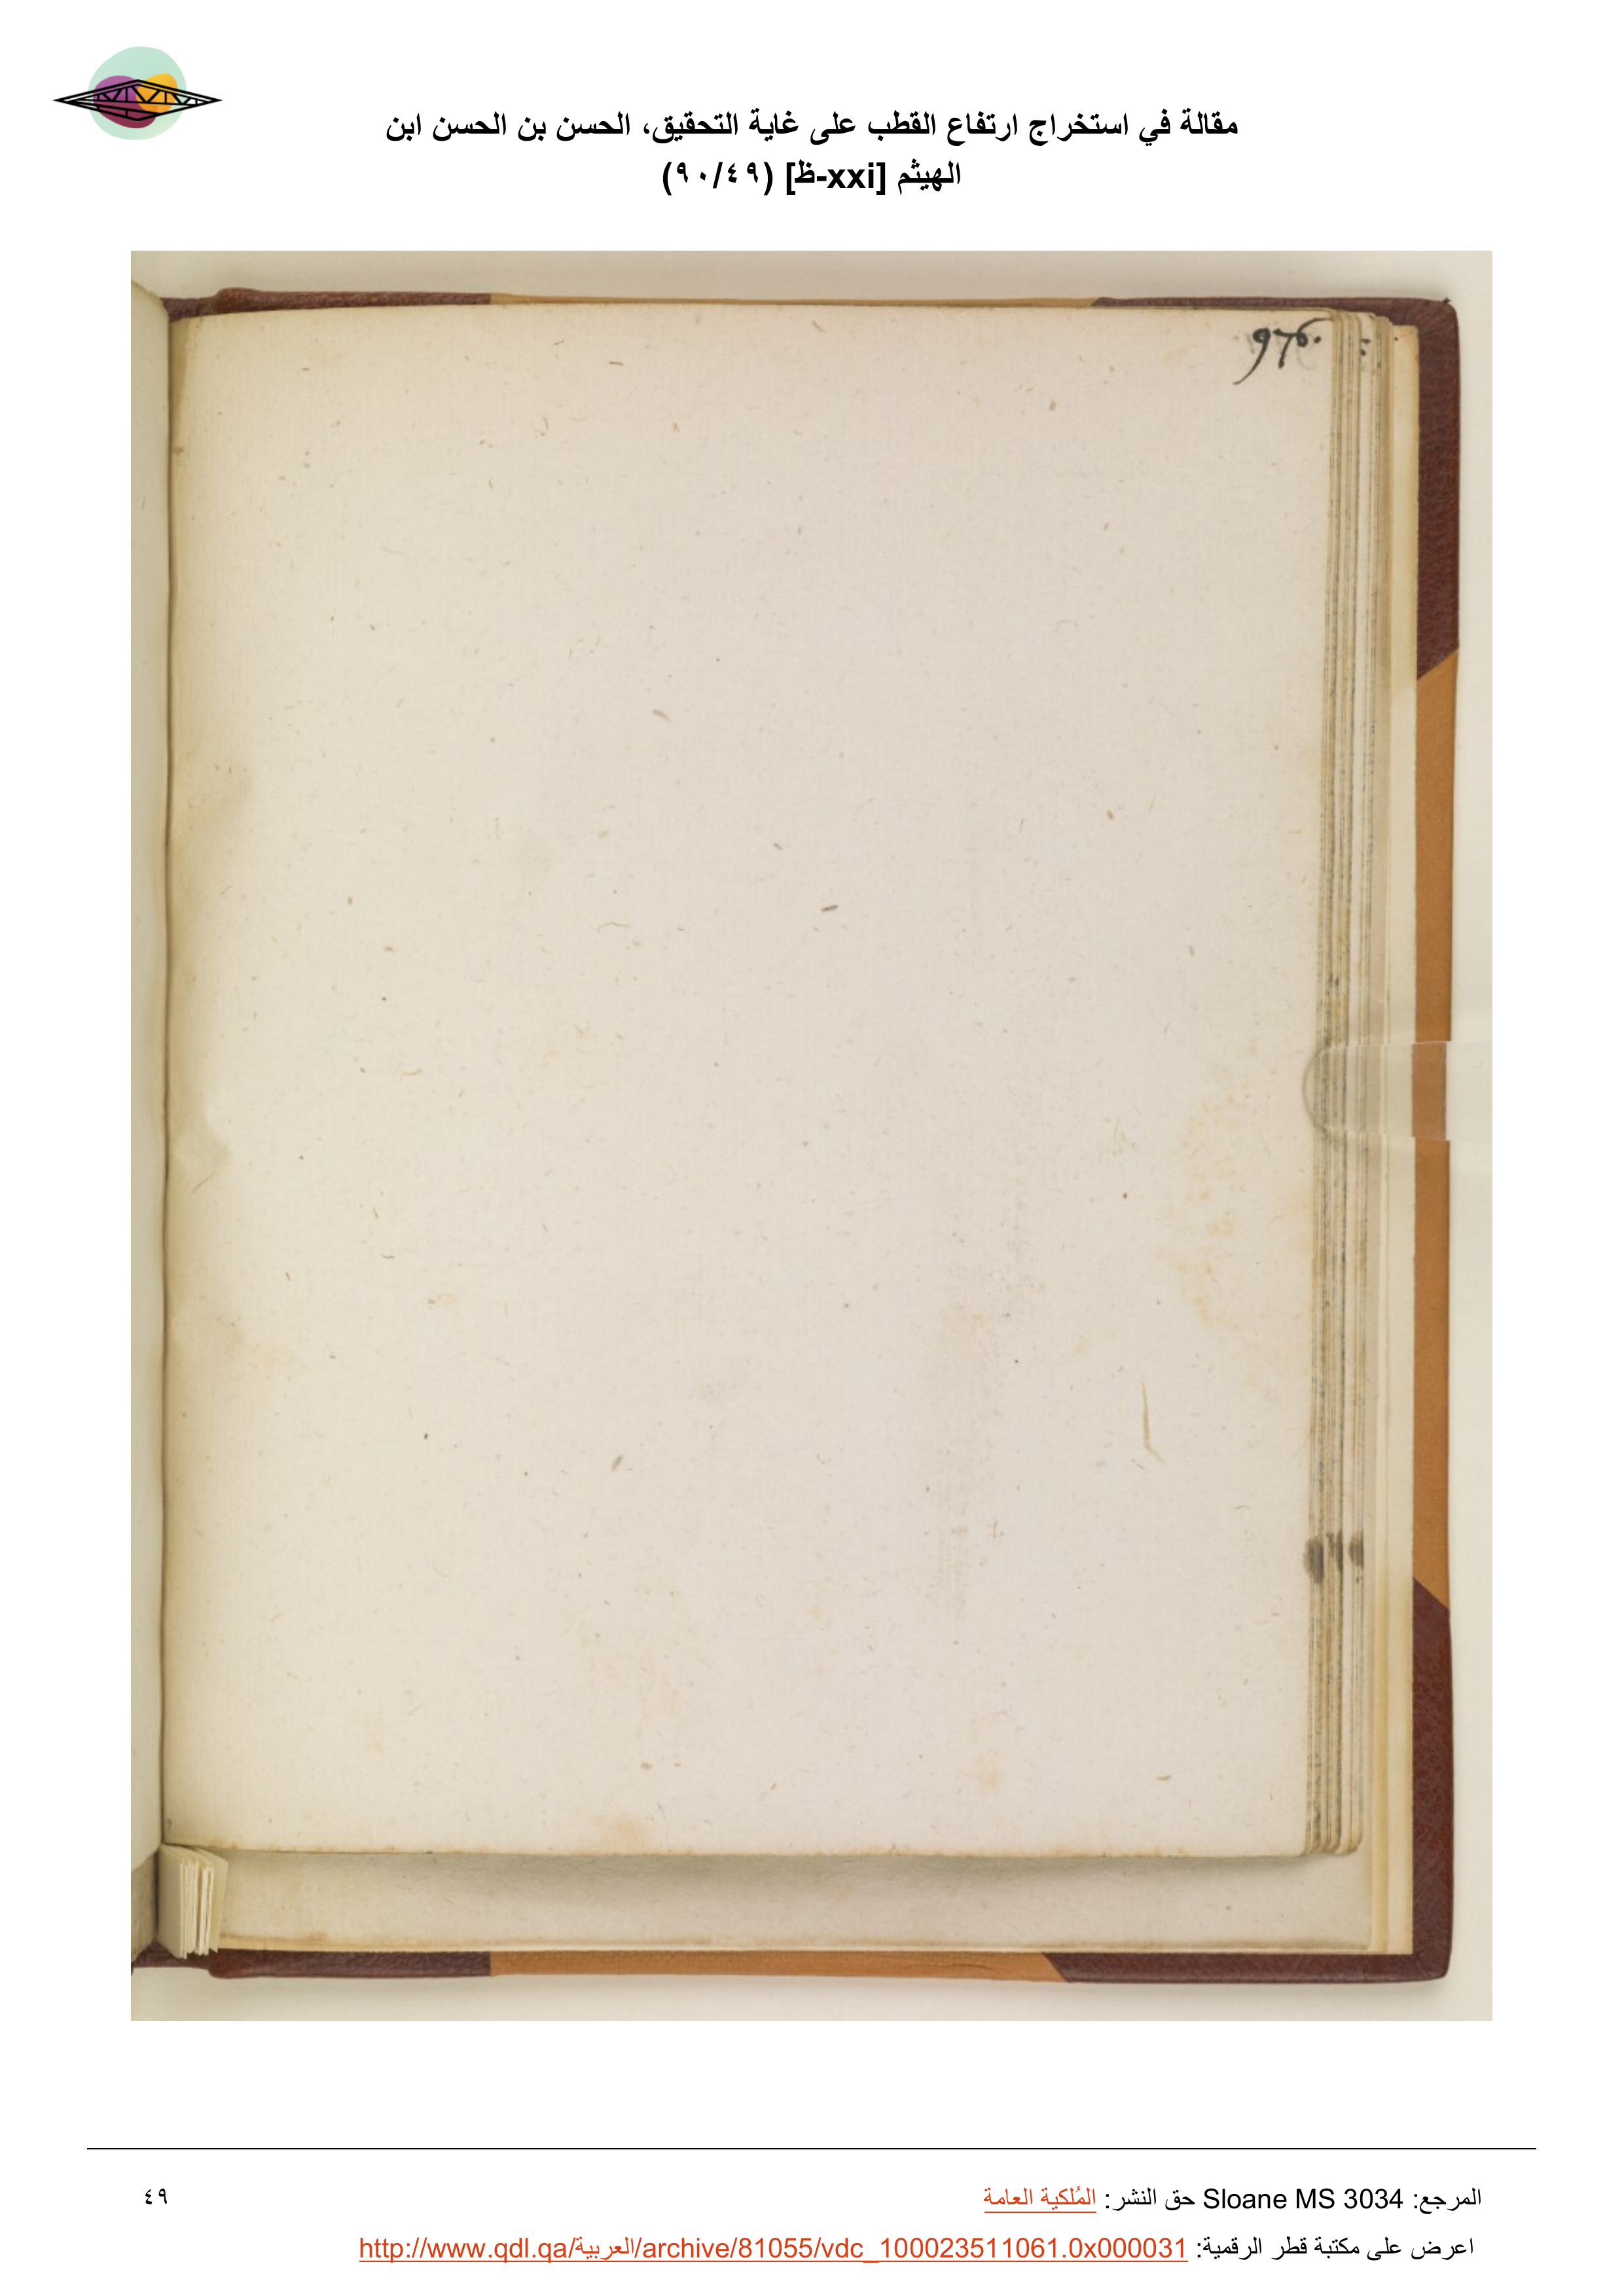 مقالة في استخراج ارتفاع القطب على غاية التحقيق، الحسن بن الحسن ابن
الهيثم [xxi-ظ] (٩٠/٤٩)
976.
المرجع: Sloane MS 3034 حق النشر: المُلكية العامة
٤٩
اعرض على مكتبة قطر الرقمية: http://www.qdl.qa/العربية/archive/81055/vdc_100023511061.0x000031